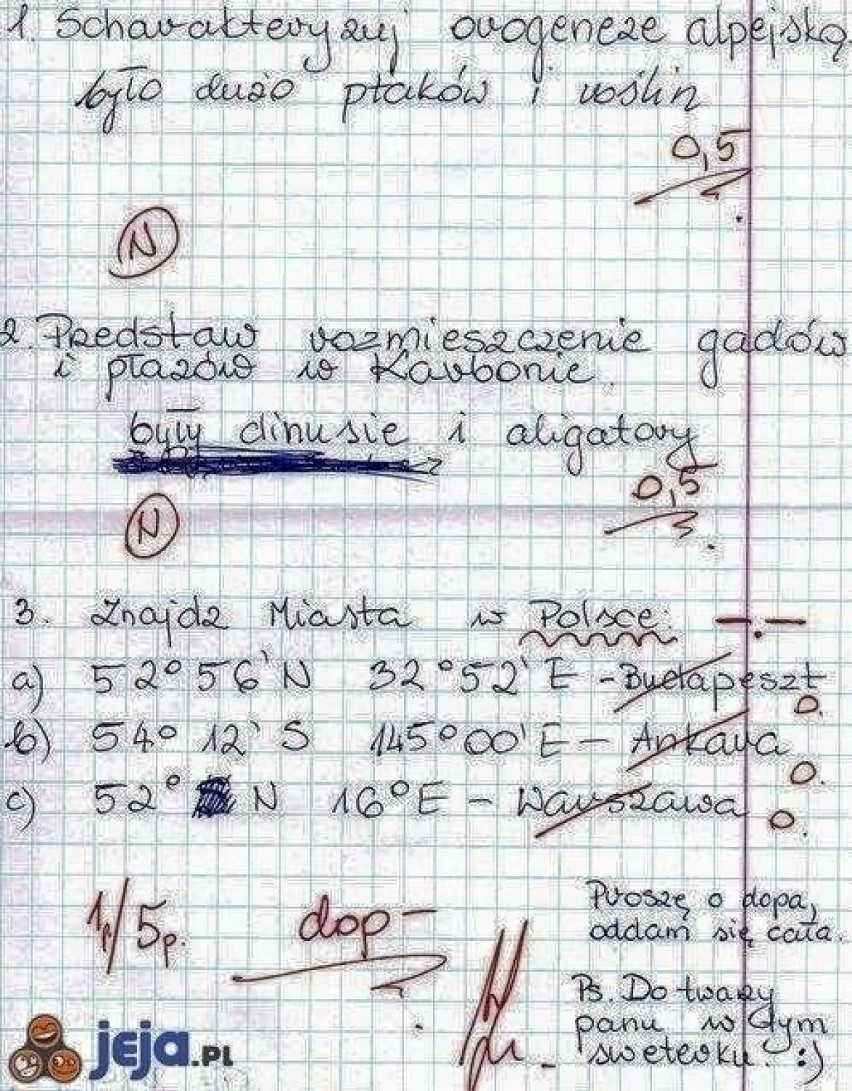 1. Scharakteryzuj orogeneze alpejską.
było dużo ptaków i roślin
0,5
N
2. Predstaw rozmieszczenie gadów
i płazów w Karbonie.
były dinusie i aligatory
0,5
N
3. Znajdz Miasta w Polsce:
a) 52° 56' N 32° 52' E - Budapeszt
0.
b) 54° 12' S 145° 00' E - Ankara
0.
c) 52° N 16° E - Warszawa
0.
1p./5p. dop -
Proszę o dopa,
oddam się cała.
Ps. Do twarzy
panu w tym
sweterku. :)
jeja.PL